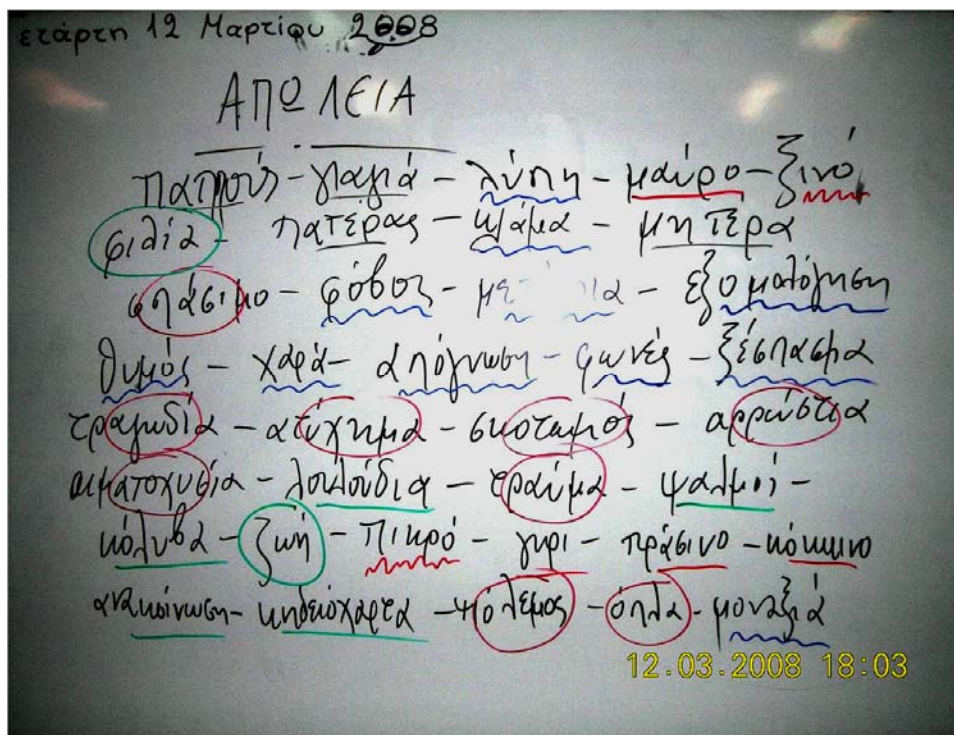 ετάρτη 12 Μαρτίου 2008
ΑΠΩΛΕΙΑ
παππούς - γιαγιά - λύπη - μαύρο - ξινό
φιλία - πατέρας - κλάμα - μητέρα
σπάσιμο - φόβος - - εξομολόγηση
θυμός - χαρά - απόγνωση - φωνές - ξέσπασμα
τραγωδία - ατύχημα - σκοτωμός - αρρώστια
αιματοχυσία - λουλούδια - τραύμα - ψαλμοί -
κόλυβα - ζωή - πικρό - γκρι - πράσινο - κόκκινο
ανακοίνωση - κηδειόχαρτα - πόλεμος - όπλα - μοναξιά
12.03.2008 18:03